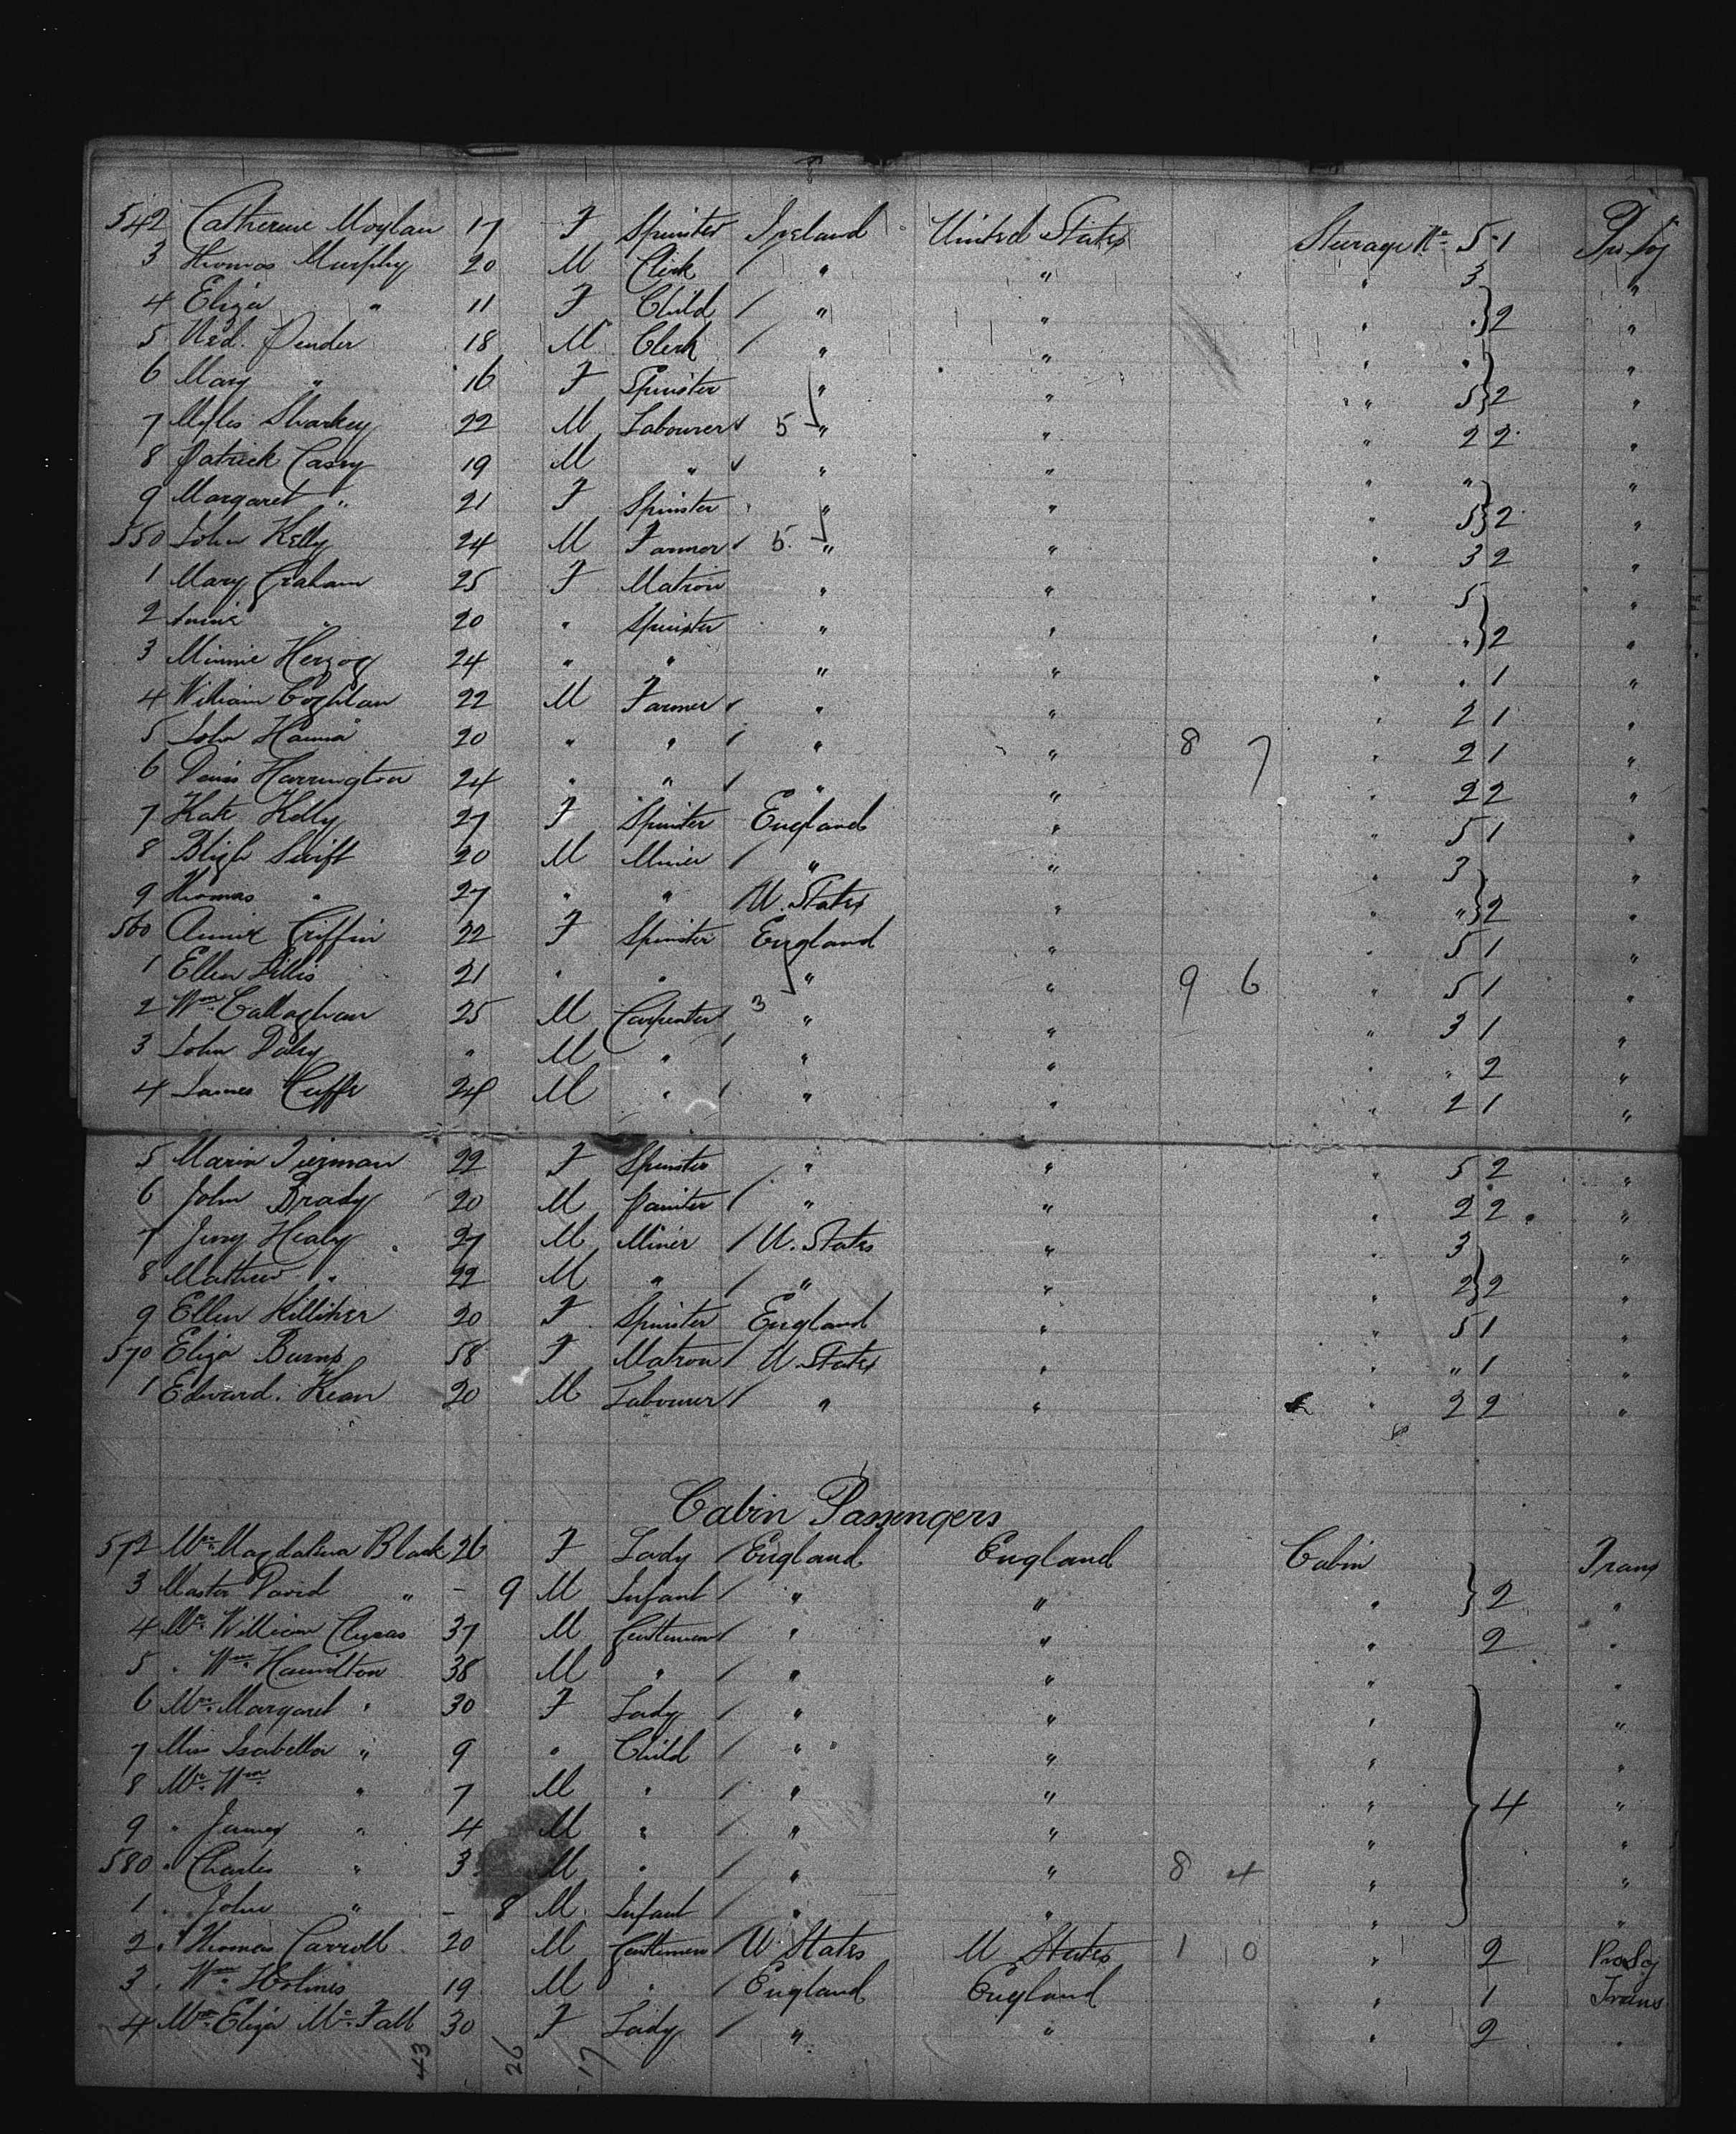 542 Catherine Moylan 17 F Spinster Ireland United States Steerage No. 5 1 Pro Soj
3 Thomas Murphy 20 M Clerk / " " " 3 "
4 Eliza " 11 F Child / " " " " } 2 "
5 Ned. Pender 18 M Clerk / " " " " "
6 Mary " 16 F Spinster " " " 5 } 2 "
7 Myles Sharkey 22 M Labourer 5 " " " 2 2 "
8 Patrick Casey 19 M " " " " " "
9 Margaret " 21 F Spinster " " " 5 } 2 "
550 John Kelly 24 M Farmer / 5 " " " 3 2 "
1 Mary Graham 25 F Matron " " " 5 "
2 Annie " 20 " Spinster " " " " } 2 "
3 Minnie Herzog 24 " " " " " " 1 "
4 William Coghlan 22 M Farmer / " " " 2 1 "
5 John Hanna 20 " " / " " 8 7 " 2 1 "
6 Denis Harrington 24 " " / " " " 2 2 "
7 Kate Kelly 27 F Spinster England " " 5 1 "
8 Bligh Swift 20 M Miner / " " " 3 "
9 Thomas " 27 " " / U. States " " " } 2 "
560 Annie Griffin 22 F Spinster England " " 5 1 "
1 Ellen Lillis 21 " " " " 9 6 " 5 1 "
2 Wm. Callaghan 25 M Carpenter 3 " " " 3 1 "
3 John Daly " M " / " " " " 2 "
4 James Cuffe 24 M " / " " " 2 1 "
5 Maria Tierman 22 F Spinster " " " 5 2 "
6 John Brady 20 M Painter / " " " 2 2 "
7 Jerry Healy 27 M Miner / U. States " " 3 "
8 Mathew " 22 M " / " " " 2 } 2 "
9 Ellen Killiher 20 F Spinster England " " 5 1 "
570 Eliza Burns 58 F Matron / U. States " " " 1 "
1 Edward. Kean 20 M Labourer / " " " 2 2 "
Cabin Passengers
572 Mrs. Magdalena Black 26 F Lady / England England Cabin Trans
3 Master David " - 9 M Infant / " " " } 2 "
4 Mr. William 37 M Gentleman / " " " 2 "
5 " Wm. Hamilton 38 M " / " " " "
6 Mrs. Margaret " 30 F Lady / " " " "
7 Miss Isabella " 9 " Child / " " " "
8 Mr. Wm. " 7 M " / " " " } 4 "
9 " James " 4 M " / " " " "
580 " Charles " 3 M " / " " 8 4 " "
1 " John " - 8 M Infant / " " " "
2 " Thomas Carroll 20 M Gentleman U. States U. States 1 0 " 2 Pro Soj
3 " Wm. Holmes 19 M " / England England " 1 Trans
4 Mrs. Eliza Mc. Fall 30 F Lady / " " " 2 "
43 26 17